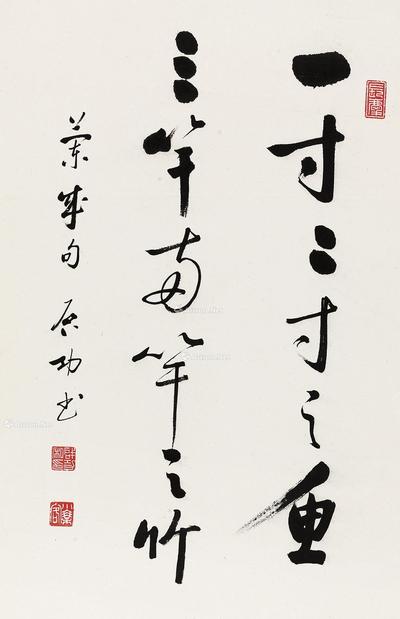 一寸二寸之鱼
三竿两竿之竹
兰成句 启功书